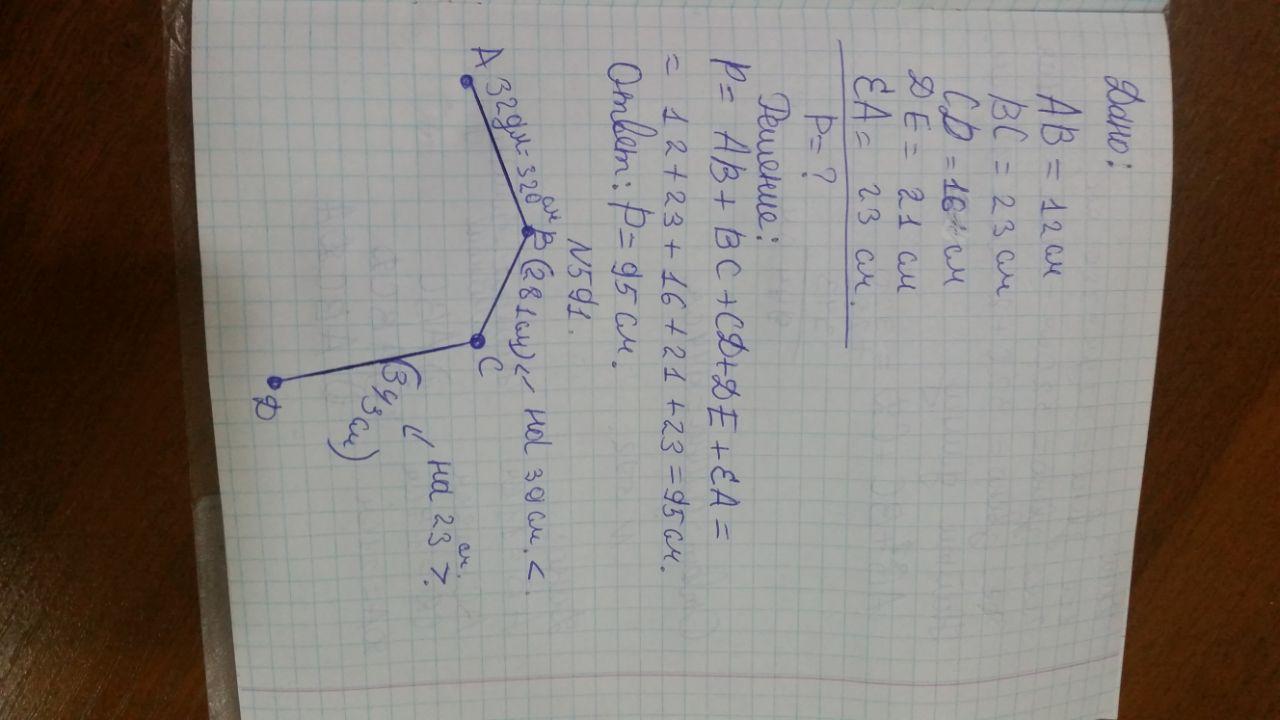 Дано:
AB = 12 см
BC = 23 см
CD = 16 см
DE = 21 см
EA = 23 см.
P = ?
Решение:
P = AB + BC + CD + DE + EA =
= 12 + 23 + 16 + 21 + 23 = 95 см.
Ответ: P = 95 см.
N591.
A 32дм=320 см B (281см) на 39 см. <.
C
(343 см) на 23 см. >.
D